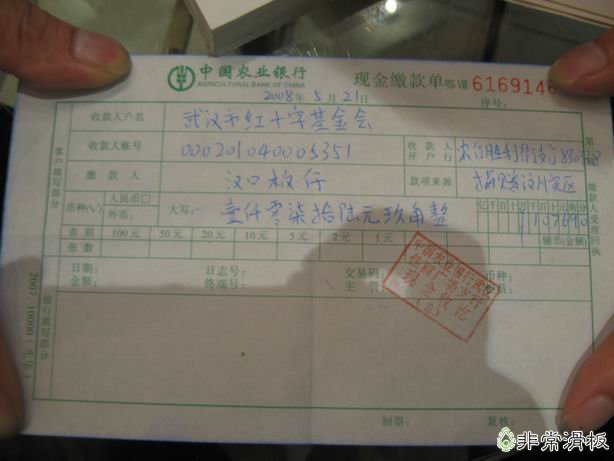 中国农业银行
AGRICULTURAL BANK OF CHINA
现金缴款单 鄂Ⅷ 6169146
2008年5月21日 序号:
客户填写部分
收款人户名 武汉市红十字基金会
收款人账号 000201040005351 收款人开户行
缴款人 汉口板仔 款项来源 捐赠汶川灾区
币种(√) 人民币□ 外币: 大写: 壹仟零柒拾陆元玖角整 亿千百十万千百十元角分 ¥107690
券别 100元 50元 20元 10元 5元 2元 1元 辅币(金额)
张数
缴款人受理回执
银行填写部分
日期: 日志号: 交易码: 币种:
金额: 终端号: 主管:
中国农业银行
现金收讫
(8)
制票: 复核:
2007.10000
非常滑板